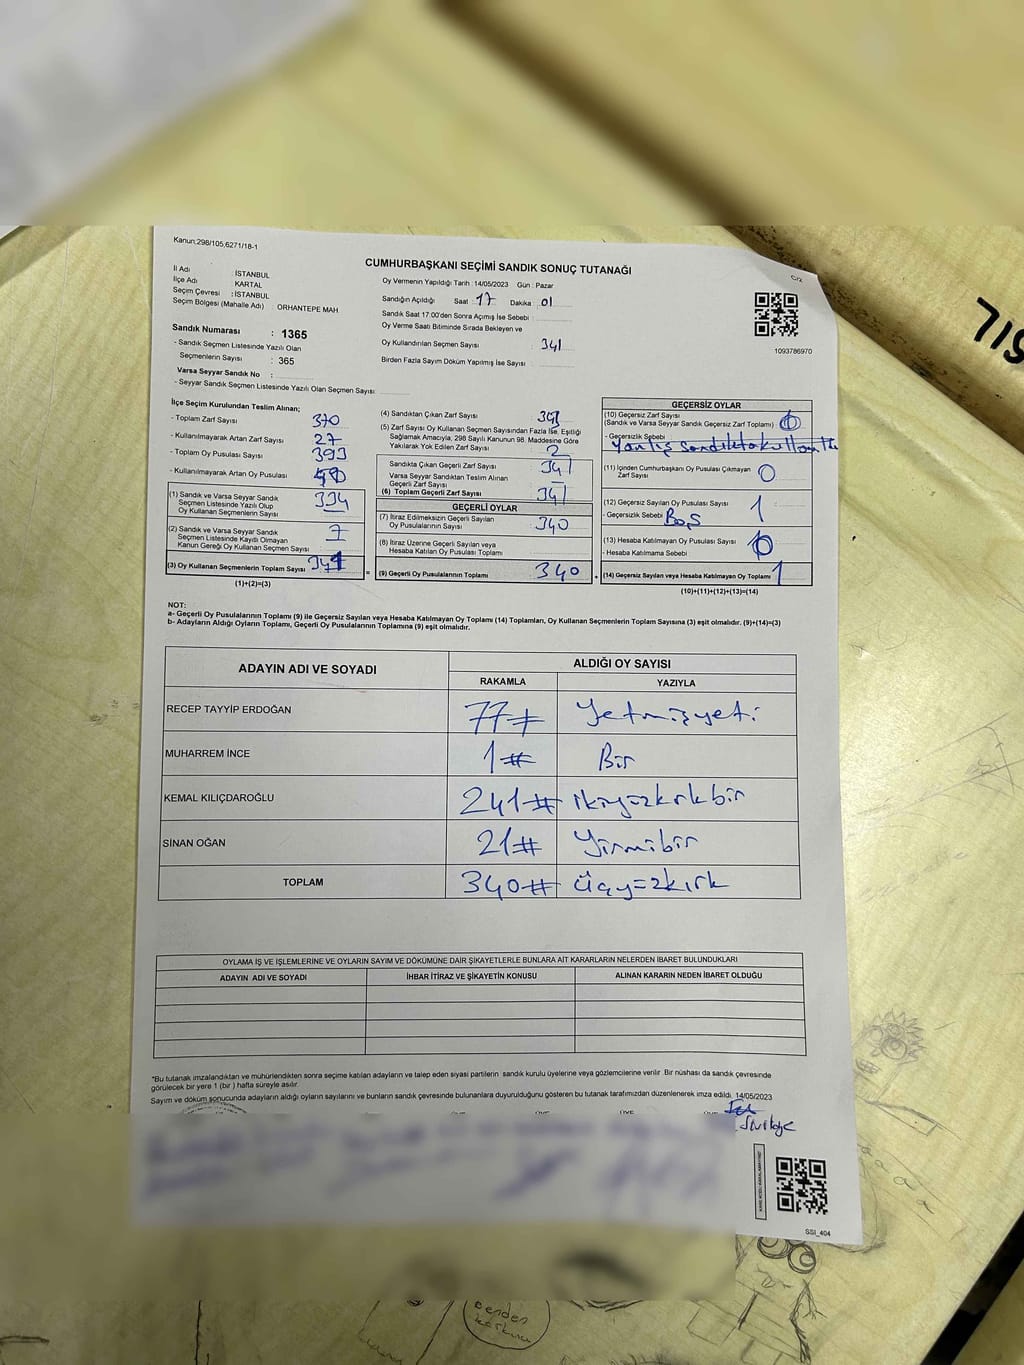 Kanun;298/105,6271/18-1
CUMHURBAŞKANI SEÇİMİ SANDIK SONUÇ TUTANAĞI
C/2
İl Adı : İSTANBUL
İlçe Adı : KARTAL
Seçim Çevresi : İSTANBUL
Seçim Bölgesi (Mahalle Adı) : ORHANTEPE MAH
Oy Vermenin Yapıldığı Tarih : 14/05/2023 Gün : Pazar
Sandığın Açıldığı Saat : 17 Dakika : 01
Sandık Saat 17:00'den Sonra Açımış İse Sebebi :
Oy Verme Saati Bitiminde Sırada Bekleyen ve
Oy Kullandırılan Seçmen Sayısı : 341
Birden Fazla Sayım Döküm Yapılmış İse Sayısı :
1093786970
Sandık Numarası : 1365
- Sandık Seçmen Listesinde Yazılı Olan
Seçmenlerin Sayısı : 365
Varsa Seyyar Sandık No :
- Seyyar Sandık Seçmen Listesinde Yazılı Olan Seçmen Sayısı:
İlçe Seçim Kurulundan Teslim Alınan;
- Toplam Zarf Sayısı 370
- Kullanılmayarak Artan Zarf Sayısı 27
- Toplam Oy Pusulası Sayısı 393
- Kullanılmayarak Artan Oy Pusulası
(1) Sandık ve Varsa Seyyar Sandık
Seçmen Listesinde Yazılı Olup
Oy Kullanan Seçmenlerin Sayısı 334
(2) Sandık ve Varsa Seyyar Sandık
Seçmen Listesinde Kayıtlı Olmayan
Kanun Gereği Oy Kullanan Seçmen Sayısı 7
(3) Oy Kullanan Seçmenlerin Toplam Sayısı 341
(1)+(2)=(3)
(4) Sandıktan Çıkan Zarf Sayısı
(5) Zarf Sayısı Oy Kullanan Seçmen Sayısından Fazla İse, Eşitliği
Sağlamak Amacıyla, 298 Sayılı Kanunun 98. Maddesine Göre
Yakılarak Yok Edilen Zarf Sayısı 2
Sandıkta Çıkan Geçerli Zarf Sayısı 341
Varsa Seyyar Sandıktan Teslim Alınan
Geçerli Zarf Sayısı –
(6) Toplam Geçerli Zarf Sayısı 341
GEÇERLİ OYLAR
(7) İtiraz Edilmeksizin Geçerli Sayılan
Oy Pusulalarının Sayısı 340
(8) İtiraz Üzerine Geçerli Sayılan veya
Hesaba Katılan Oy Pusulası Toplamı
= (9) Geçerli Oy Pusulalarının Toplamı 340
GEÇERSİZ OYLAR
(10) Geçersiz Zarf Sayısı
(Sandık ve Varsa Seyyar Sandık Geçersiz Zarf Toplamı)
- Geçersizlik Sebebi
Yanlış sandıkta
(11) İçinden Cumhurbaşkanı Oy Pusulası Çıkmayan
Zarf Sayısı 0
(12) Geçersiz Sayılan Oy Pusulası Sayısı 1
- Geçersizlik Sebebi Boş
(13) Hesaba Katılmayan Oy Pusulası Sayısı
- Hesaba Katılmama Sebebi
+ (14) Geçersiz Sayılan veya Hesaba Katılmayan Oy Toplamı 1
(10)+(11)+(12)+(13)=(14)
NOT:
a- Geçerli Oy Pusulalarının Toplamı (9) ile Geçersiz Sayılan veya Hesaba Katılmayan Oy Toplamı (14) Toplamları, Oy Kullanan Seçmenlerin Toplam Sayısına (3) eşit olmalıdır. (9)+(14)=(3)
b- Adayların Aldığı Oyların Toplamı, Geçerli Oy Pusulalarının Toplamına (9) eşit olmalıdır.
ADAYIN ADI VE SOYADI ALDIĞI OY SAYISI
RAKAMLA YAZIYLA
RECEP TAYYİP ERDOĞAN 77# Yetmişyeti
MUHARREM İNCE 1# Bir
KEMAL KILIÇDAROĞLU 241# ikiyüzkırkbir
SİNAN OĞAN 21# Yirmibir
TOPLAM 340# Üçyüzkırk
OYLAMA İŞ VE İŞLEMLERİNE VE OYLARIN SAYIM VE DÖKÜMÜNE DAİR ŞİKAYETLERLE BUNLARA AİT KARARLARIN NELERDEN İBARET BULUNDUKLARI
ADAYIN ADI VE SOYADI İHBAR İTİRAZ VE ŞİKAYETİN KONUSU ALINAN KARARIN NEDEN İBARET OLDUĞU
*Bu tutanak imzalandıktan ve mühürlendikten sonra seçime katılan adayların ve talep eden siyasi partilerin sandık kurulu üyelerine veya gözlemcilerine verilir .Bir nüshası da sandık çevresinde
görülecek bir yere 1 (bir ) hafta süreyle asılır.
Sayım ve döküm sonucunda adayların aldığı oyların sayılarını ve bunların sandık çevresinde bulunanlara duyurulduğunu gösteren bu tutanak tarafımızdan düzenlenerek imza edildi. 14/05/2023
SSİ_404
benden